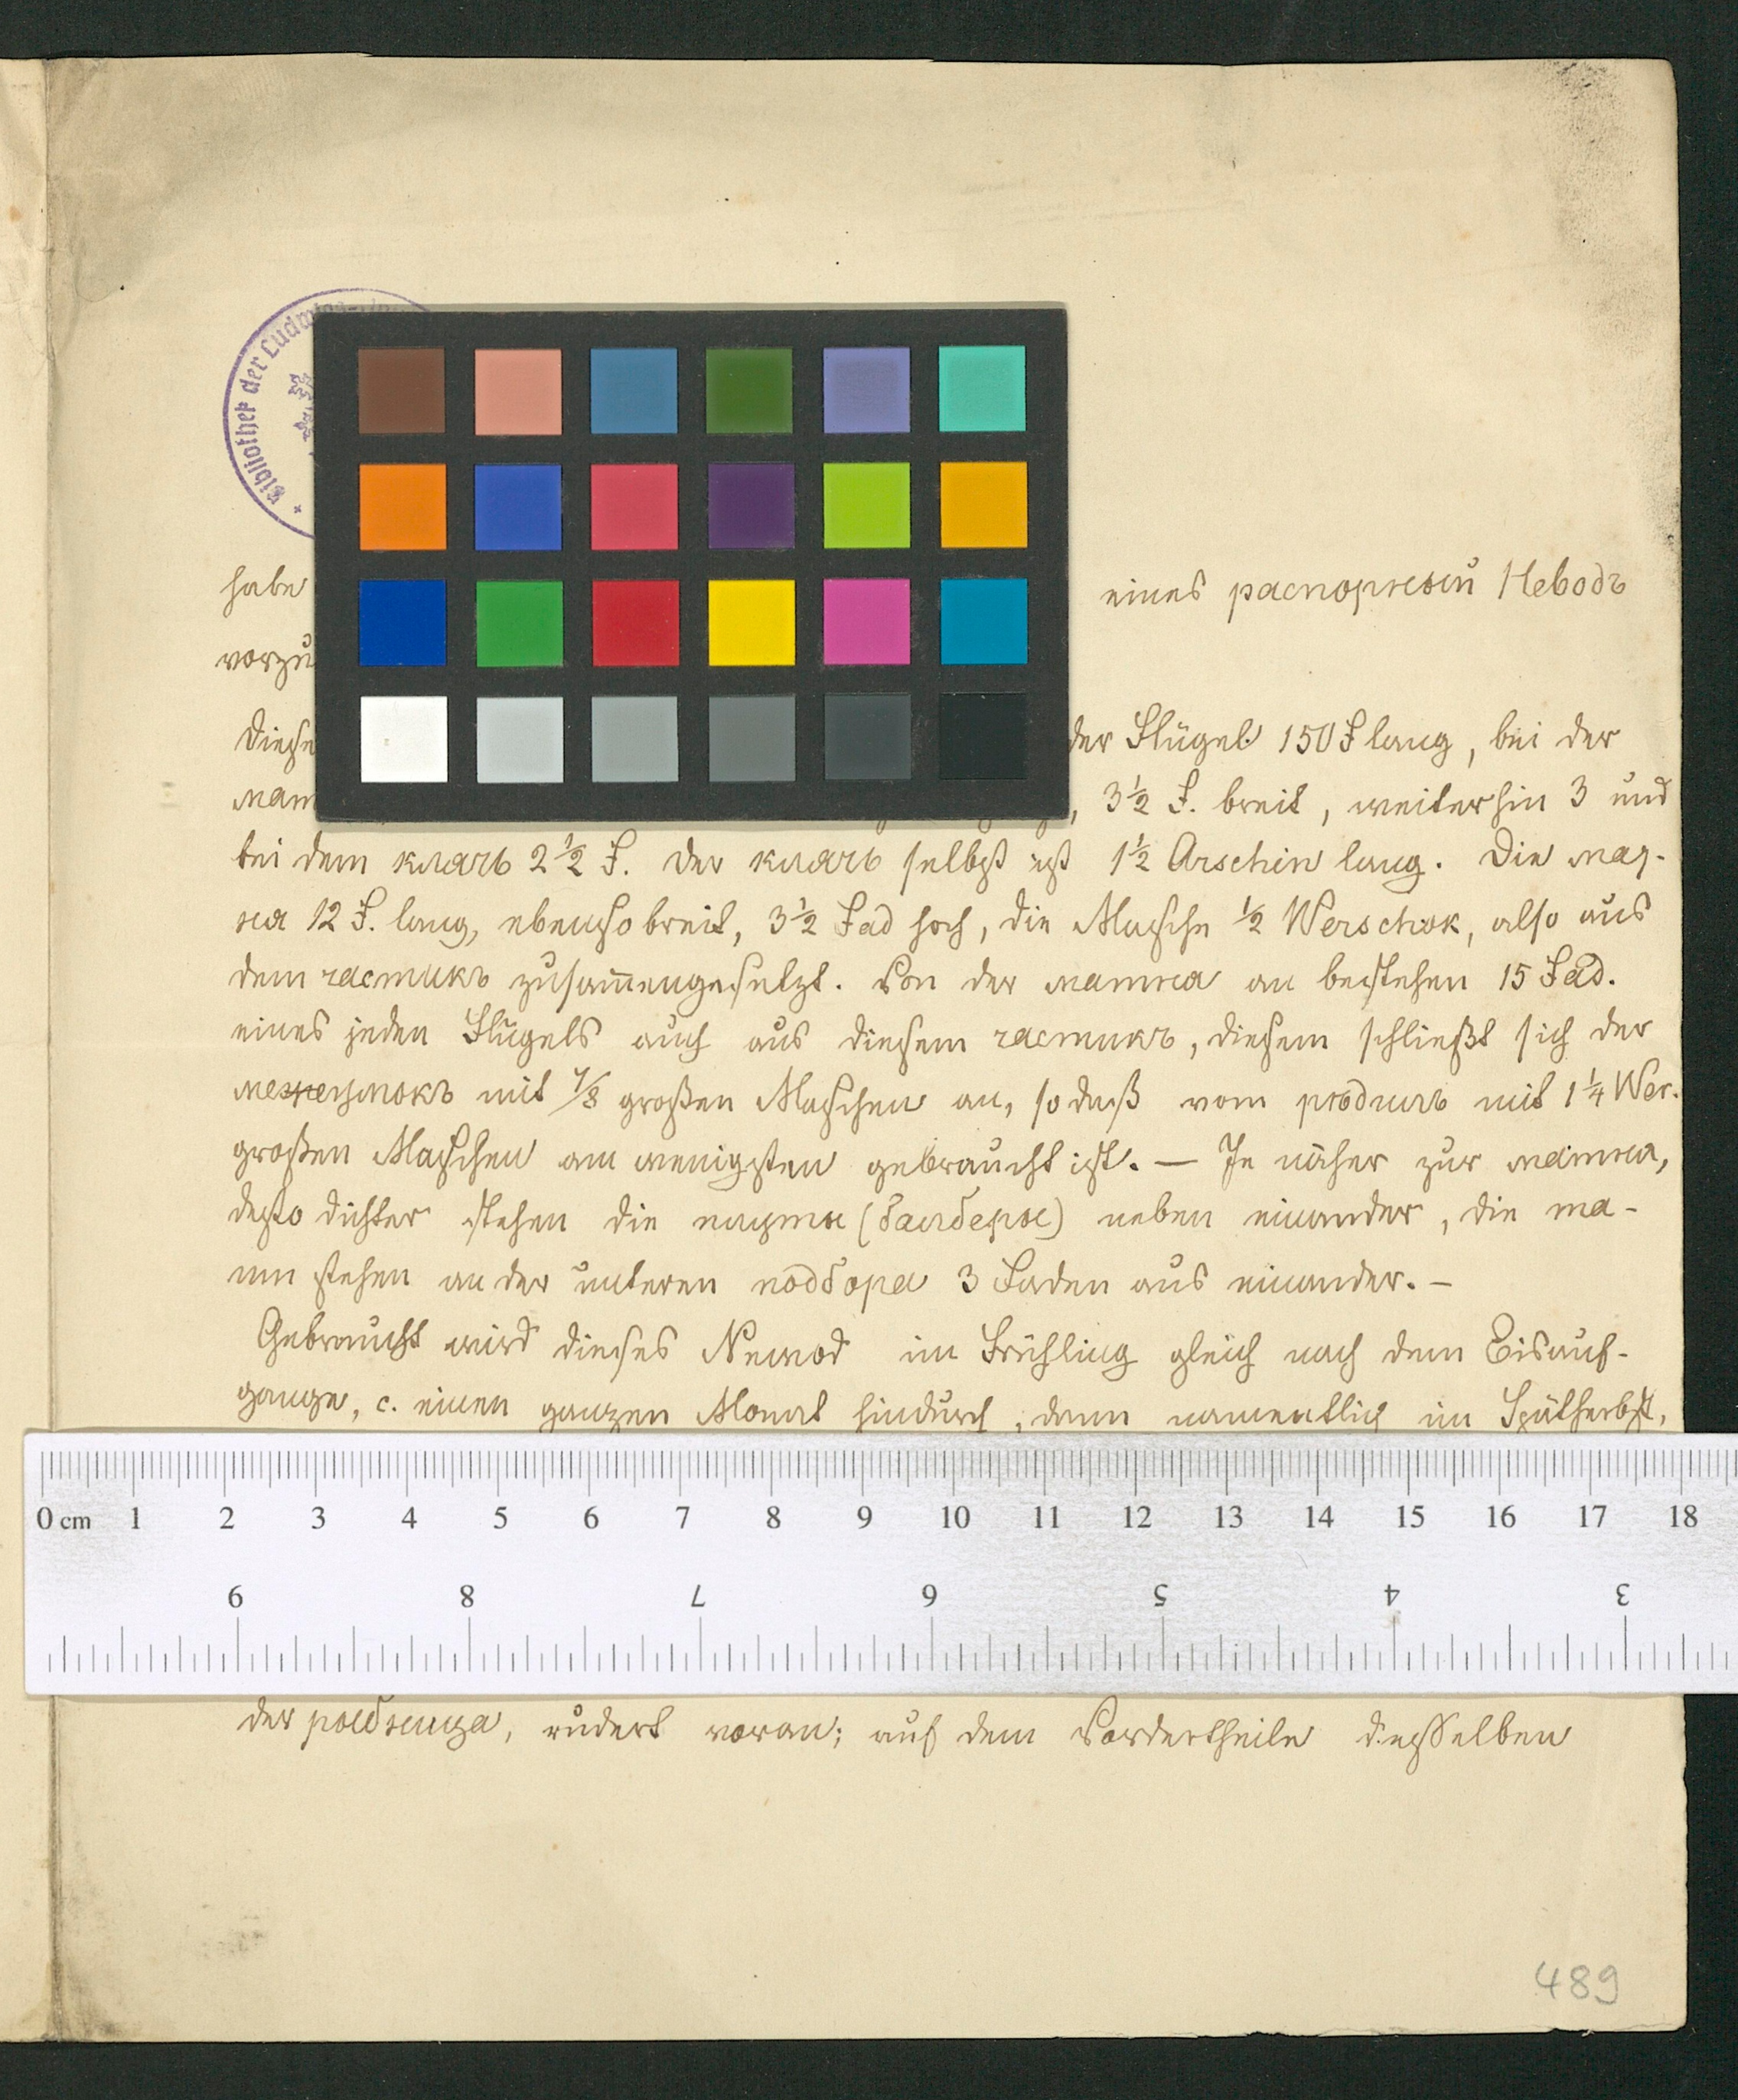 Bibliothek der Ludw
habe eines распорный Неводъ
vorzu
Diese der Flügel 150 F lang, bei der
мат 3½ F. breit, weiterhin 3 und
bei dem клячъ 2½ F. Der клячъ selbst ist 1½ Arschin lang. Die мат-
ня 12 F. lang, ebenso breit, 3½ Fad hoch, die Masche ½ Werschok, also aus
dem частикъ zusam̅engesetzt. Von der матня an bestehen 15 Fad.
eines jeden Flügels auch aus diesem частикъ, diesem schließt sich der
межеумокъ mit 7/8 großen Maschen an, so daß vom рѣдиль mit 1¼ Wer.
großen Maschen am wenigsten gebraucht ist. — Je näher zur матня,
desto dichter stehen die (балберы) neben einander, die та-
unteren подбора 3 Faden aus einander. —
stehen an der
Gebraucht wird dieses Newod im Frühling gleich nach dem Eisauf-
gange, c. einen ganzen Monat hindurch, dann namentlich im Spätherbst,
0 cm 1 2 3 4 5 6 7 8 9 10 11 12 13 14 15 16 17 18
9 8 7 6 5 4 3
der rudert voran; auf dem Vordertheile desselben
489